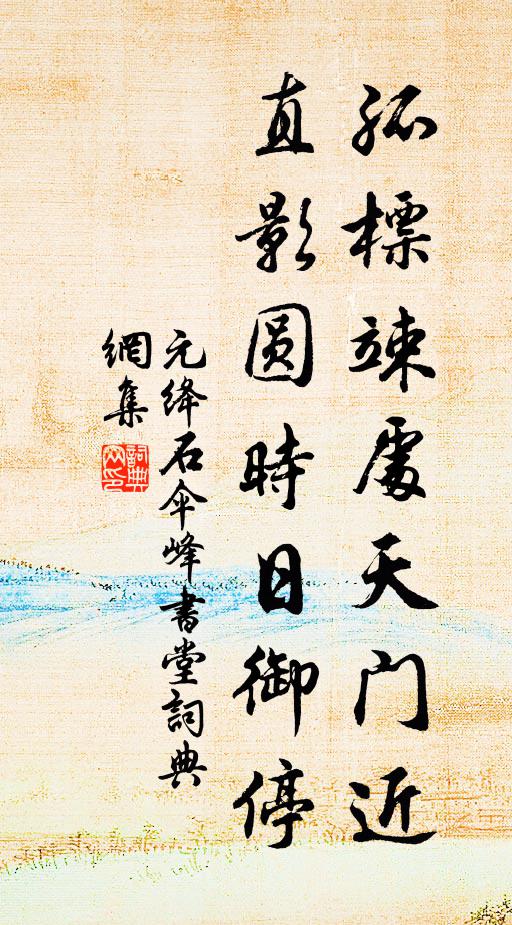 孤標竦處天门近
直影圆時日御停
元绛石伞峰書堂詞典
網集
詞典
网印